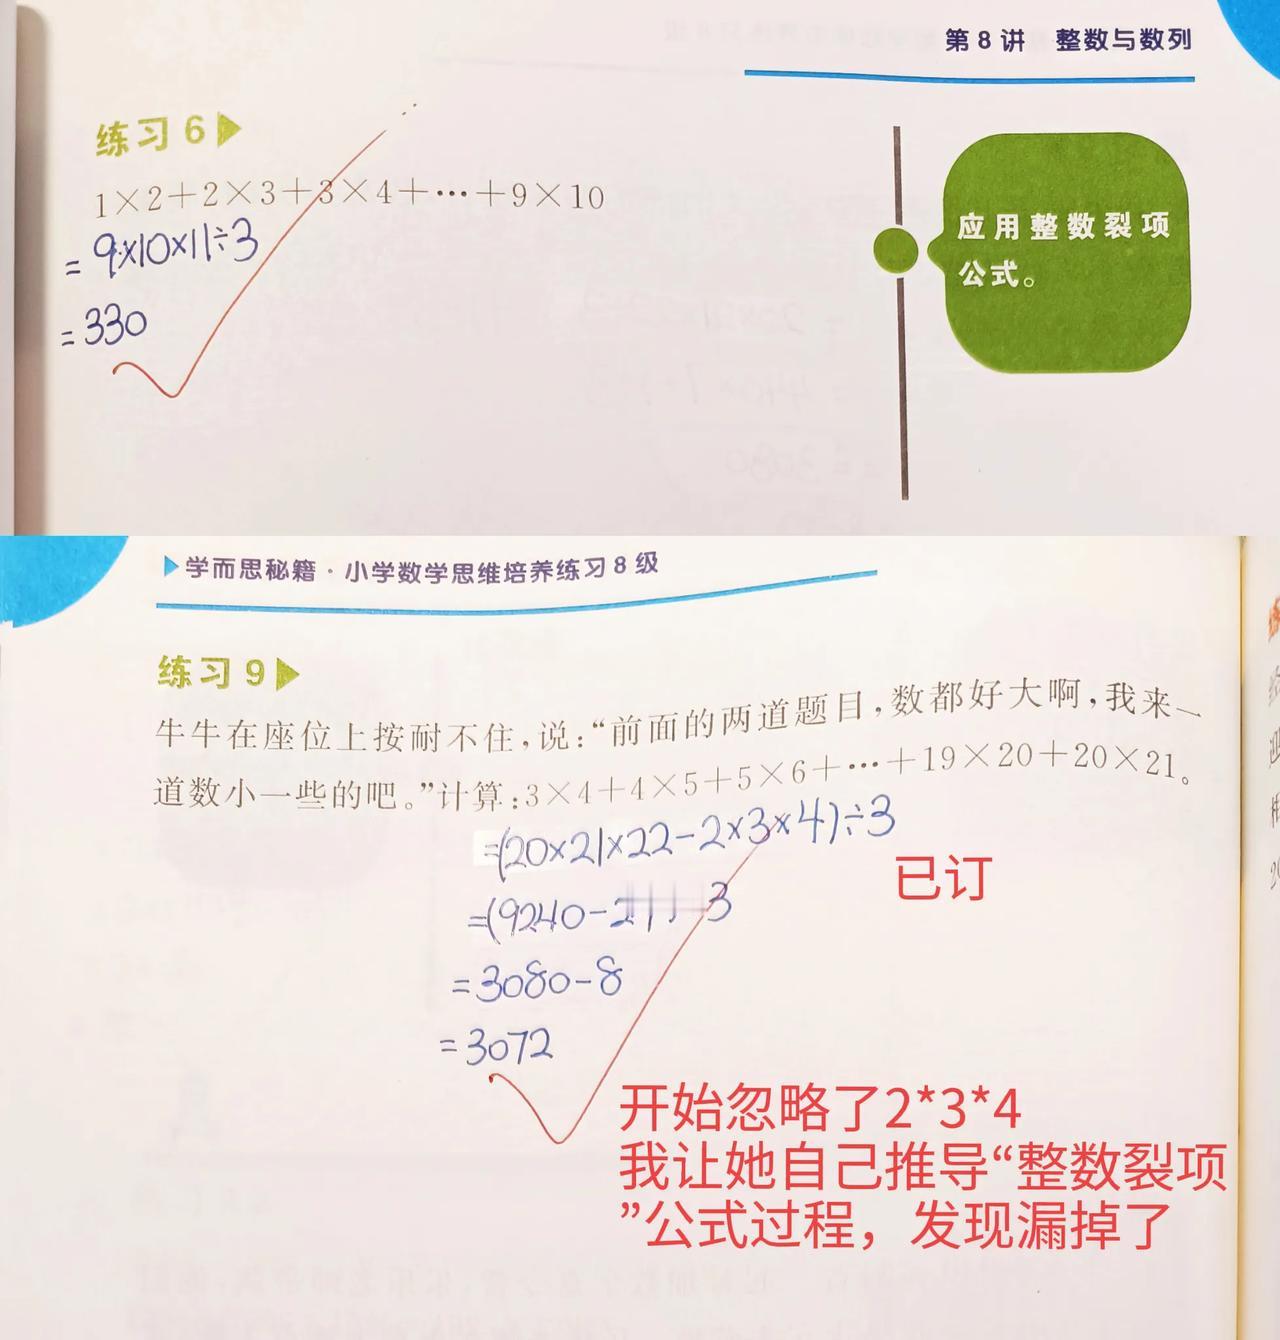 第8讲 整数与数列
练习6
1×2+2×3+3×4+…+9×10
=9×10×11÷3
=330
应用整数裂项
公式。
学而思秘籍·小学数学思维培养练习8级
练习9
牛牛在座位上按耐不住，说：“前面的两道题目，数都好大啊，我来一
道数小一些的吧。”计算：3×4+4×5+5×6+…+19×20+20×21。
=(20×21×22-2×3×4)÷3
已订
=(9240-2
=3080-8
=3072
开始忽略了2*3*4
我让她自己推导“整数裂项
”公式过程，发现漏掉了